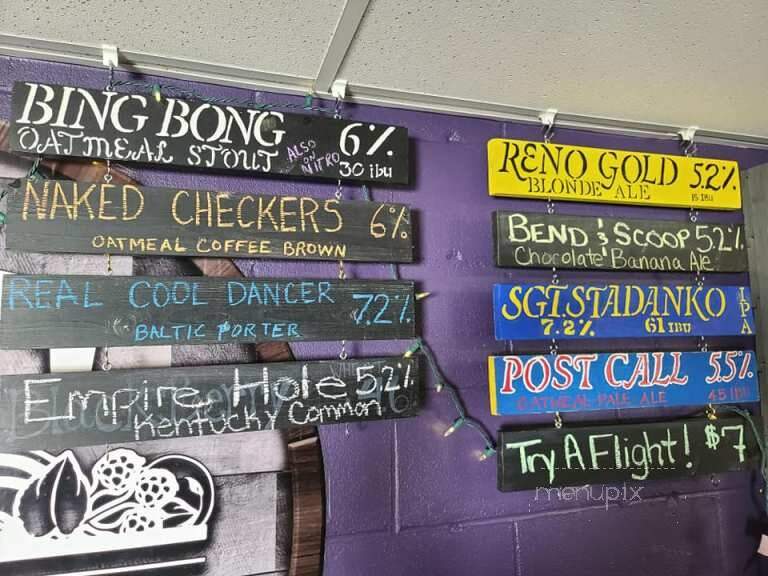 BING BONG
OATMEAL STOUT
ALSO ON NITRO
6%
30 ibu
NAKED CHECKERS 6%
OATMEAL COFFEE BROWN
REAL COOL DANCER 7.2%
BALTIC PORTER
Empire Hole 5.2%
Kentucky Common
RENO GOLD 5.2%
BLONDE ALE 15 IBU
BEND & SCOOP 5.2%
Chocolate Banana Ale
SGT. STADANKO IPA
7.2% 61 IBU
POST CALL 5.5%
OATMEAL PALE ALE 45 IBU
Try A Flight! $7
menupix